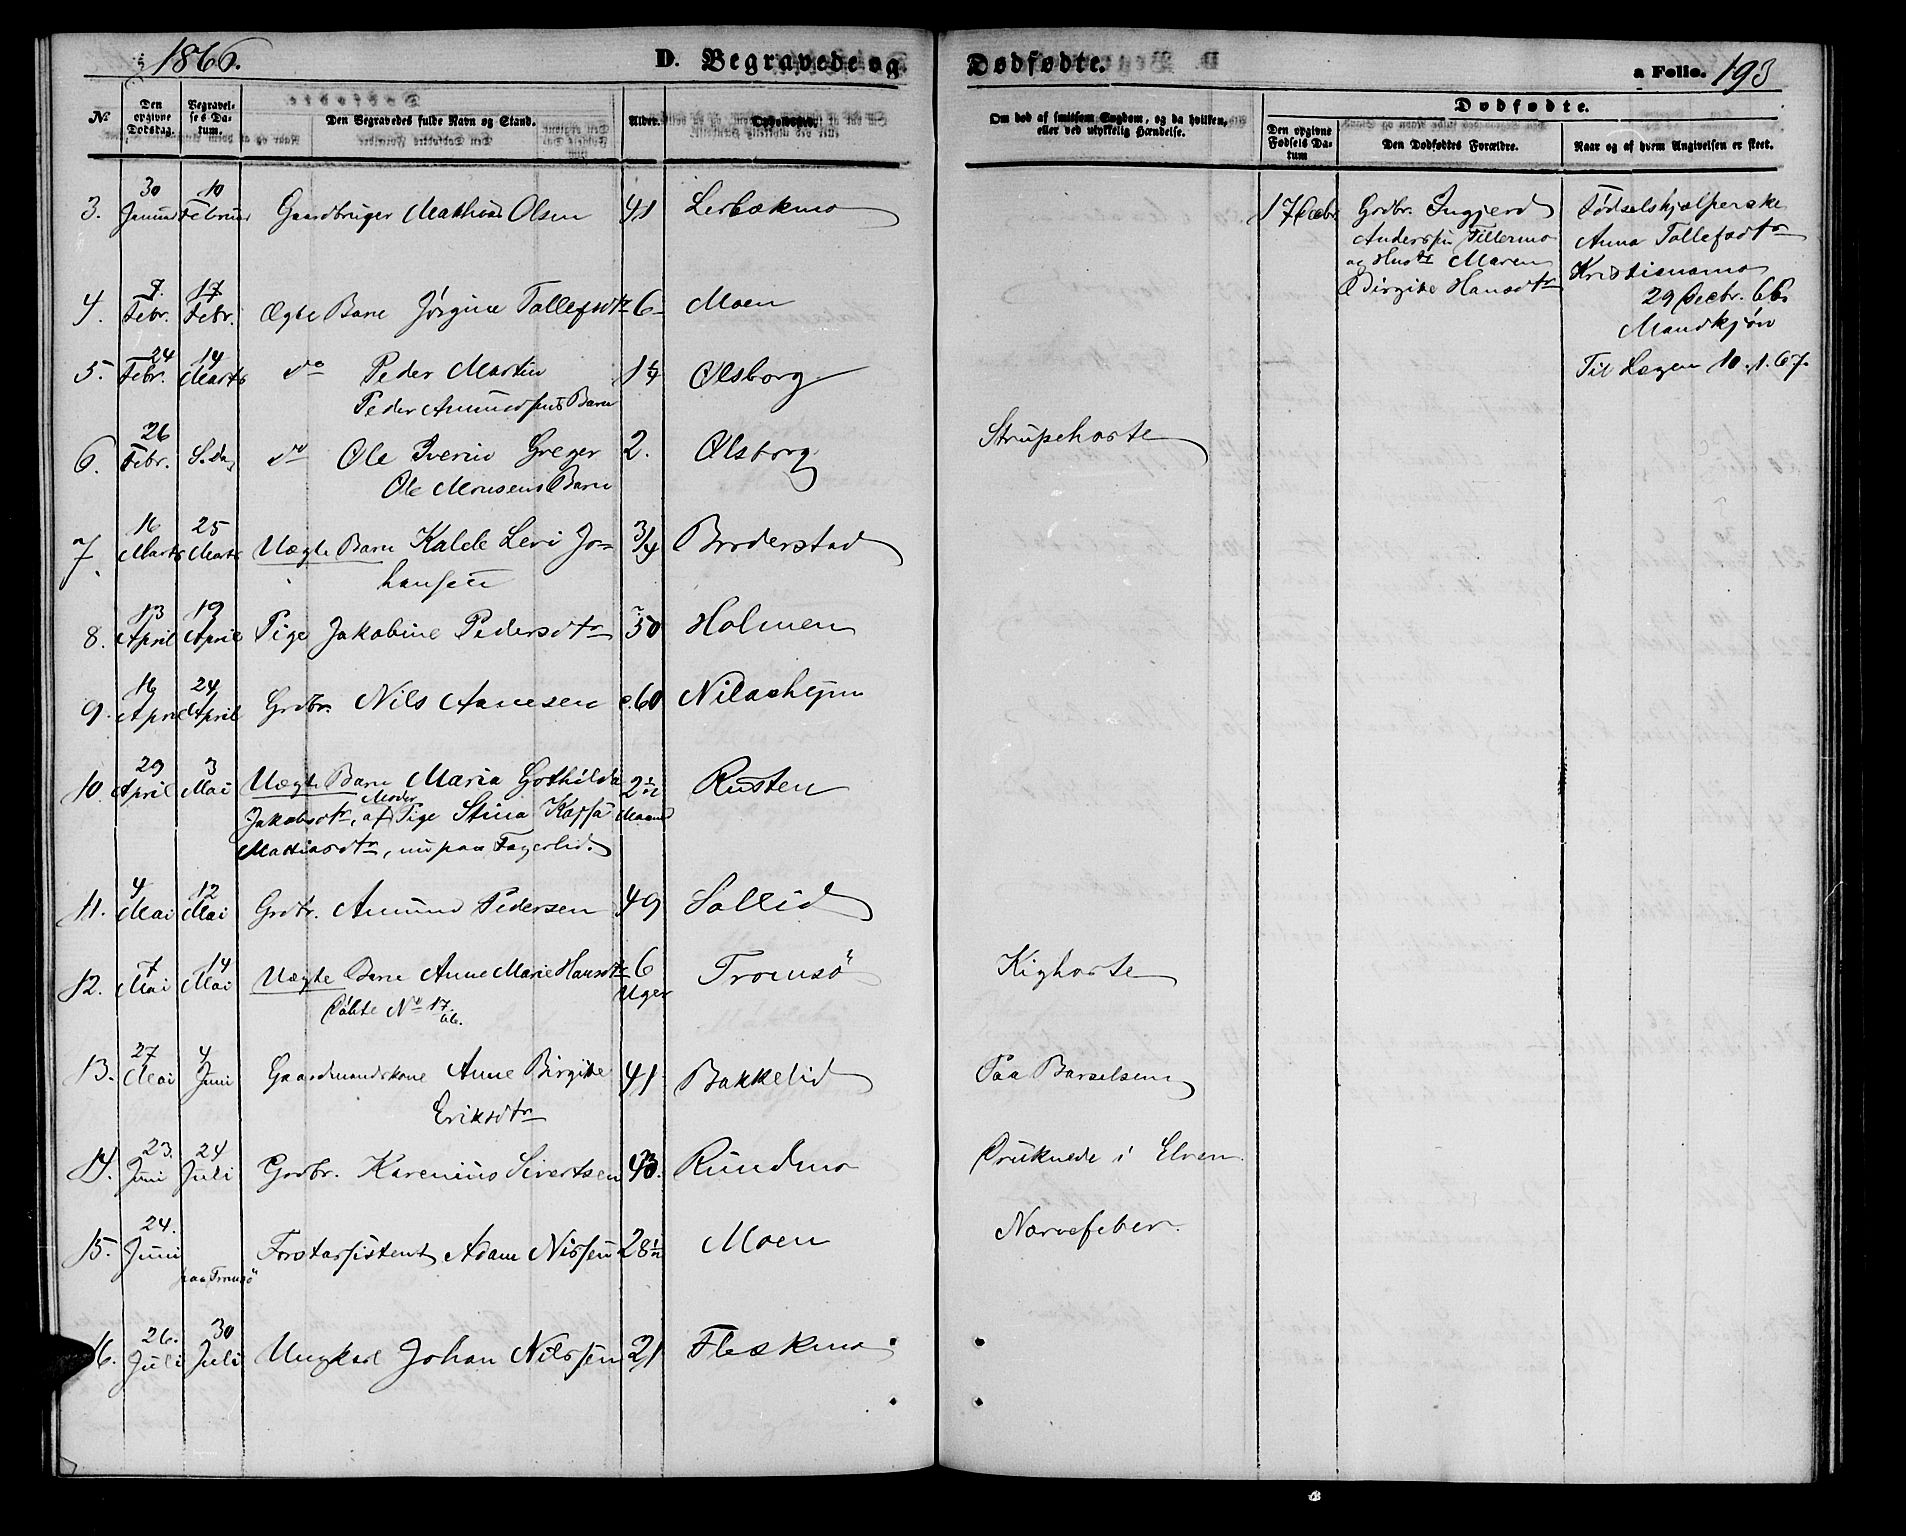 1866.
D. Begravede og
Dødfødte.
a Folio. 193
No.
Den opgivne Dødsdag.
Begravelses Datum.
Den Begravedes fulde Navn og Stand.
Alder.
Opholdssted.
Om død af smitsom Sygdom, og da hvilken, eller ved ulykkelig Hændelse.
Dødfødte.
Den opgivne Fødsels Datum
Den Dødfødtes Forældre.
Naar og af hvem Angivelsen er skeet.
3. 30 Januar 10 Februar Gaardbruger Mathias Olsen 41 Lerbækmo
17 Decbr. Grdbr. Ingjerd
Anderssen Tillermo
og Hustr Maren
Birgitte Hansdtr
Fødselshjælperske
Anna Tollefsdtr
Kristianamo
29 Decbr. 66
Mandkjøn
Til Lægen 10.1.67.
4. 9. Febr. 17 Febr. Ægte Barn Jørgine Tollefsdtr 6 Moen
5. 24 Febr. 14 Marts do Peder Martin
Peder Amundsens Barn 1 1/4 Olsborg
6. 26 Febr. S. Dag do Ole Iverin Greger
Ole Monsens Barn 2. Olsborg Strupehoste
7. 16 Marts 25 Marts Uægte Barn Kalde Levi Jo-
hansen 3/4 Broderstad
8. 13 April 19 April Pige Jakobine Pedersdtr 50 Holmen
9. 16 April 24 April Grdbr. Nils Arnesen c. 60 Nilashejm
10. 29 April 3 Mai Uægte Barn Maria Gothilda
Jakobsdtr, af Moder Pige Stina Kajsa
Mattiasdtr, nu paa Fagerlid. 2 1/2 Maaned Rusten
11. 4 Mai 12 Mai Grdbr. Amund Pedersen 49 Sollid
12. 7 Mai 14 Mai Uægte Barn Anne Marie Hansdtr
Døbte No 17 66. 6 Uger Tromsö Kighoste
13. 27 Mai 4 Juni Gaardmandskone Anne Birgitte
Eriksdtr 41 Bakkelid Paa Barselseng
14. 23. Juni 24 Juli Grdbr. Karenius Sivertsen 43. Rundmo Druknede i Elven.
15. 24. Juni paa Tromsö Forstassistent Adam Nissen 28 1/2 Moen Nervefeber.
16. 26. Juli 30 Juli Ungkarl Johan Nilssen 21 Fleskmo